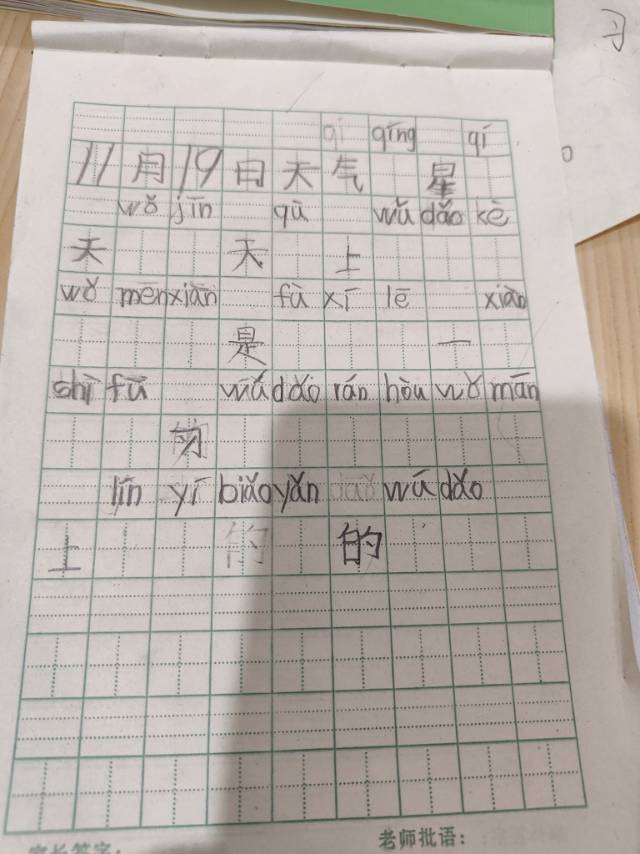 习
qì qíng qī
11月19日天气 星
wǒ jīn qù wǔ dǎo kè
天 天 上
wǒ men xiàn fù xí lē xiàn
是 一
shì fū wǔ dǎo rán hòu wǒ mān
的
lín yī biǎo yǎn wǔ dǎo
上 的 的
家长签字： 老师批语：